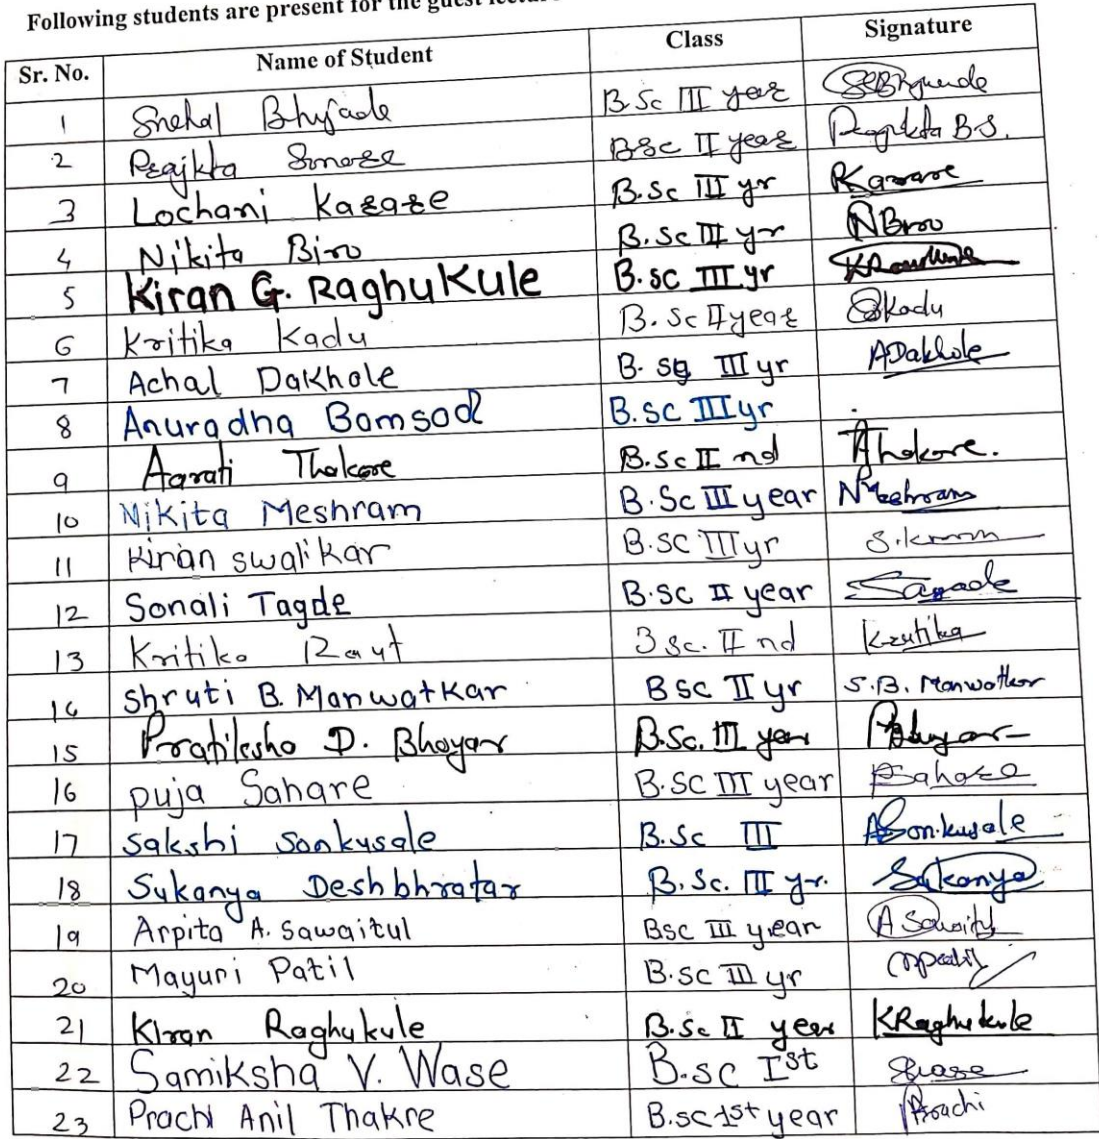 Following students are present for the guest lecture
Sr. No. Name of Student Class Signature
1 Snehal Bhujade B.Sc III year
2 Prajkta Sonare BSc II year Prajkta B.S.
3 Lochani Kazaze B.Sc III yr
4 Nikita Biro B.Sc III yr NBiro
5 Kiran G. Raghukule B.sc III yr
6 Kritika Kadu B.Sc II year Kadu
7 Achal Dakhole B.sc III yr ADakhole
8 Anuradha Bamsod B.sc III yr
9 Aarati Thakare B.Sc II nd Thakore.
10 Nikita Meshram B.Sc III year NMeshram
11 Kiran swalikar B.SC III yr S.kiran
12 Sonali Tagde B.sc II year
13 Kritika Raut B sc. II nd Krutika
14 Shruti B. Manwatkar B sc II yr S.B. Manwatkar
15 Pratiksha D. Bhoyar B.Sc. III year
16 puja Sahare B.SC III year
17 Sakshi Sonkusale B.Sc III Sonkusale
18 Sukanya Deshbhratar B.Sc. III yr. Sukanya
19 Arpita A. Sawaitul Bsc III year
20 Mayuri Patil B.sc III yr mpatil
21 Kiran Raghukule B.Sc II year KRaghukule
22 Samiksha V. Wase B.sc Ist
23 Prachi Anil Thakre B.sc 1st year Prachi